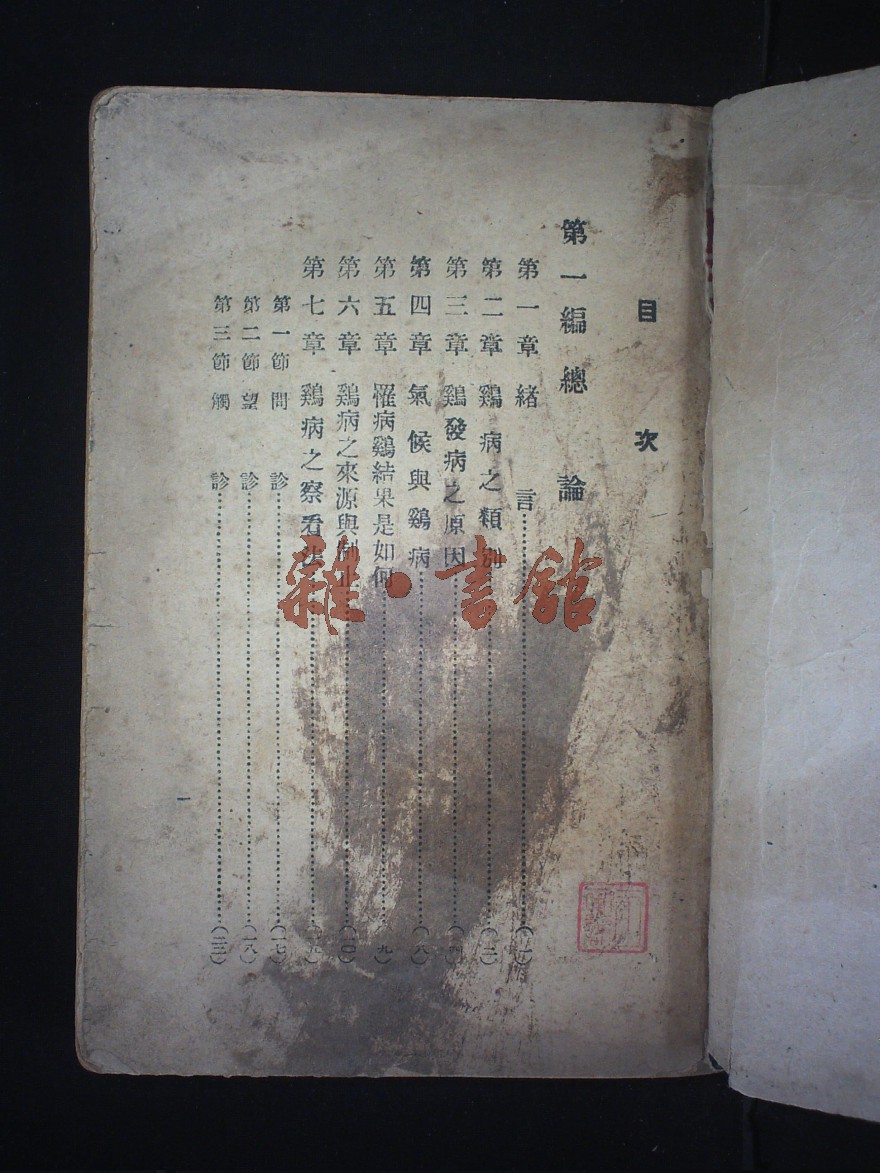 目次
第一編 總論
第一章 緒言……(一)
第二章 鷄病之類別……(二)
第三章 鷄發病之原因……(四)
第四章 氣候與鷄病……(八)
第五章 罹病鷄結果是如何……(九)
第六章 鷄病之來源與制止……(一〇)
第七章 鷄病之察看法……(一五)
第一節 問診……(一七)
第二節 望診……(一八)
第三節 觸診……(二三)
雜·書館